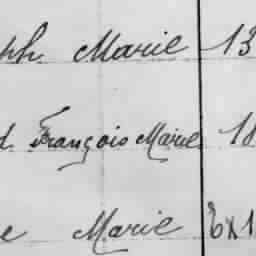 ph Marie 13
d François Marie 18
e Marie Ex 1